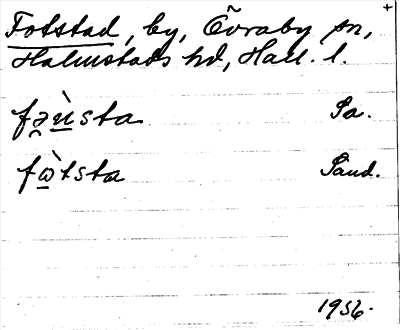 +
Fotstad, by, Övraby sn,
Halmstads hd, Hall. l.
fə̯ù̲sta Sa.
fὼ̲tsta Sand.
1956.